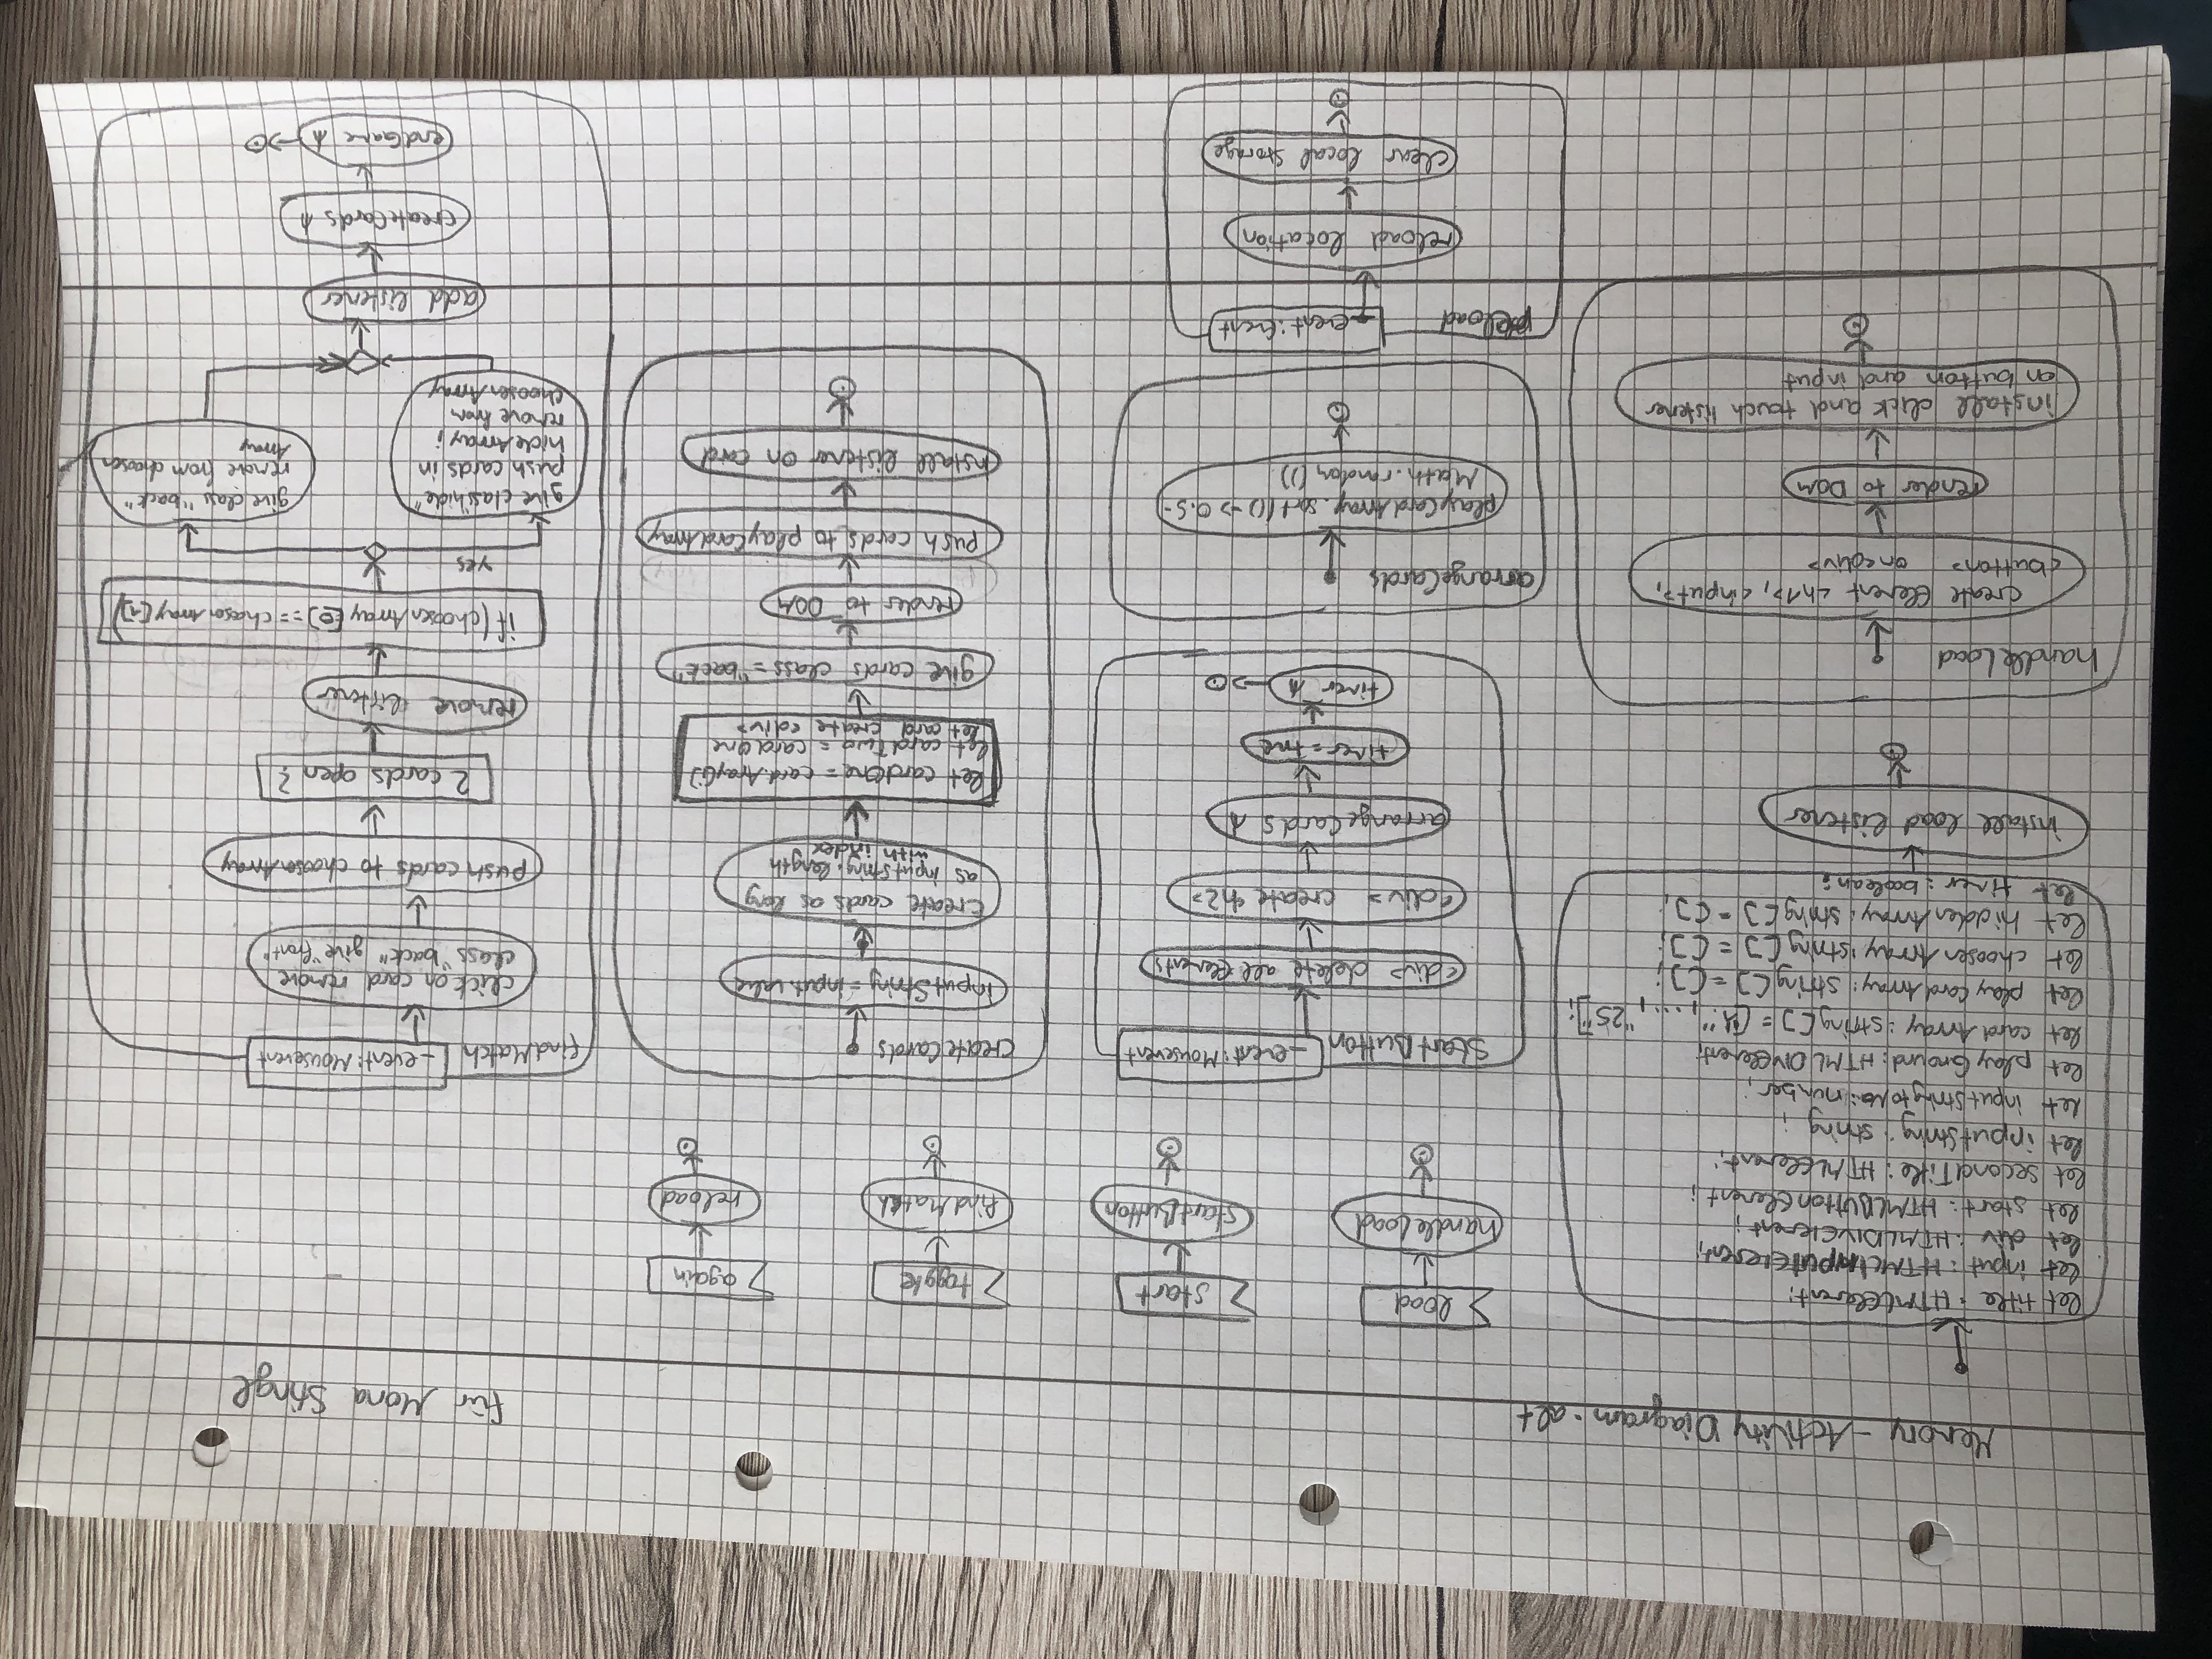 Memory - Activity Diagram - alt
für Mona Stingl
let title : HTMLElement;
let input : HTMLInputElement;
let div : HTMLDivElement;
let start : HTMLButtonElement;
let secondTitle : HTMLElement;
let inputString : string;
let inputStringtoNo : number;
let playGround : HTMLDivElement;
let cardArray : string[] = ["1", ..., "25"];
let playCardArray : string[] = [];
let choosenArray : string[] = [];
let hiddenArray : string[] = [];
let timer : boolean;
install load listener
handleLoad
create Element <h1>, <input>,
<button> on <div>
render to DOM
install click and touch listener
on button and input
load
handleLoad
start
startButton
toggle
findMatch
again
reload
StartButton
event: Mousevent
<div> delete all elements
<div> create <h2>
arrangeCards
timer = true
timer
arrangeCards
playCardArray.sort(() => 0.5 -
Math.random())
reload
event: Event
reload location
clear local Storage
createCards
inputString = input.value
create cards as long
as inputString.length
with index
let cardOne = cardArray[i]
let cardTwo = cardOne
let card create <div>
give cards class = "back"
render to DOM
push cards to playCardArray
install listener on card
findMatch
event: Mousevent
click on card remove
class "back" give "front"
push cards to choosenArray
2 cards open?
remove listener
if (choosenArray[0] == chosenArray[1])
yes
give class "hide"
push cards in
hideArray;
remove from
choosenArray
give class "back"
remove from choosen
Array
add listener
createCards
endGame